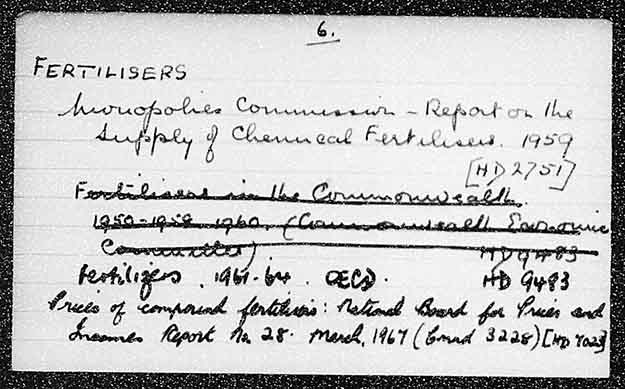 6.
FERTILISERS
Monopolies Commission - Report on the
Supply of Chemical Fertilisers. 1959
[HD 2751]
Fertilisers in the Commonwealth.
1950-1958 1960. (Commonwealth Economic
Committee) HD 9483
Fertilizers. 1961-64. OECD. HD 9483
Prices of compound fertilisers: National Board for Prices and
Incomes Report No. 28. March, 1967 (Cmnd 3228) [HD 7023]